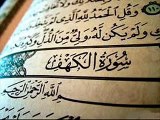 وَقُلِ الْحَمْدُ لِلَّهِ الَّذِي
وَلَمْ يَكُن لَّهُ وَلِيٌّ مِّنَ الذُّلِّ
سُورَةُ الْكَهْفِ
بِسْمِ اللَّهِ الرَّحْمَٰنِ الرَّحِيمِ